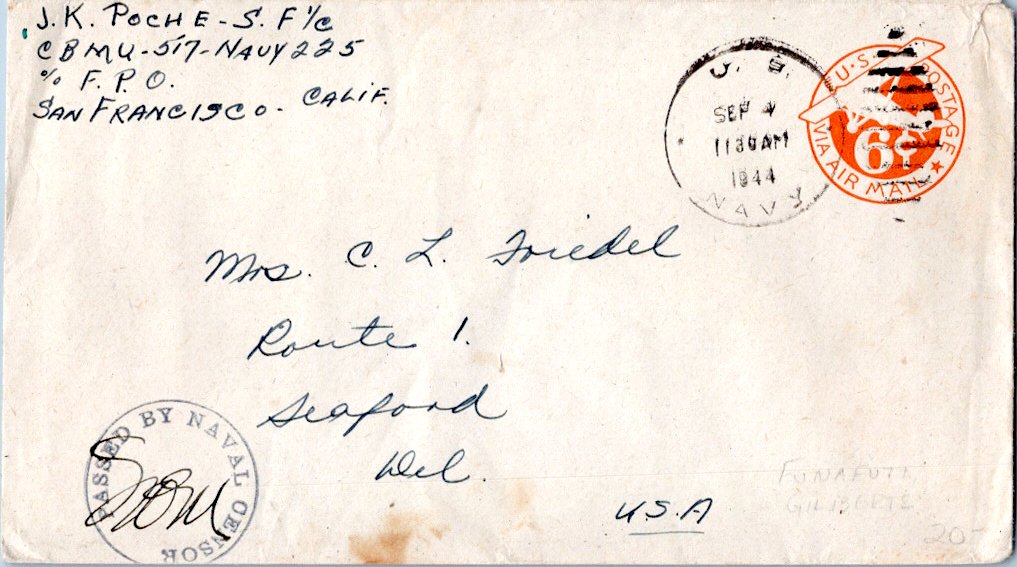 J. K. POCHE - S. F 1/C
CBMU - 517 - NAVY 225
% F. P. O.
SAN FRANCISCO - CALIF.
U. S.
SEP 4
1130 AM
1944
NAVY
U.S. POSTAGE
6¢
VIA AIR MAIL
Mrs. C. L. Friedel
Route 1.
Seaford
Del.
U.S.A
PASSED BY NAVAL CENSOR
FUNAFUTI
GILBERTS
20-